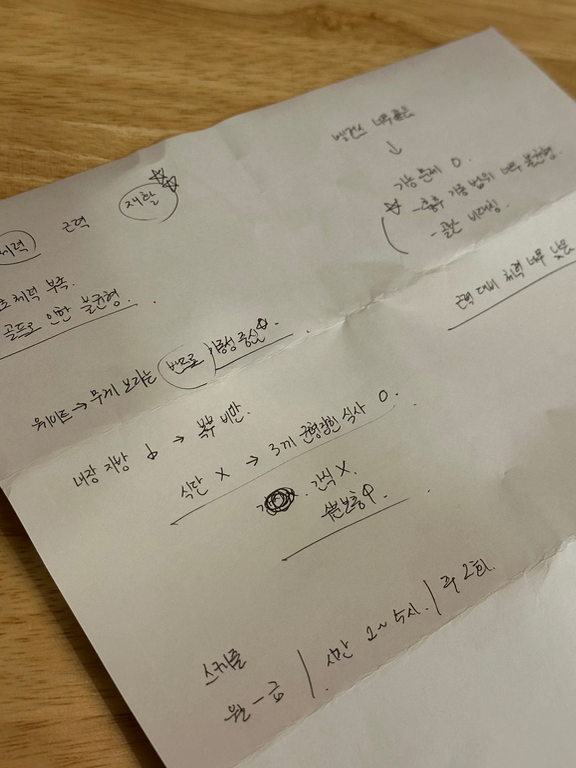 밸런스 너무 좋은
↓
기능 문제 O.
☆ - 흉추 가동 범위 너무 불균형.
- 골반 비대칭.
체력 근력 재활 ☆☆
초체력 부족.
골프로 인한 불균형.
근력 대비 체력 너무 낮음
웨이트 → 무게 보다는 번으로 가동성 중심
내장 지방 → 복부 비만.
식단 X → 3끼 균형잡힌 식사 O.
간식 X.
수분보충
스케줄
월 - 금 / 시간 2~5시. / 주 2회.